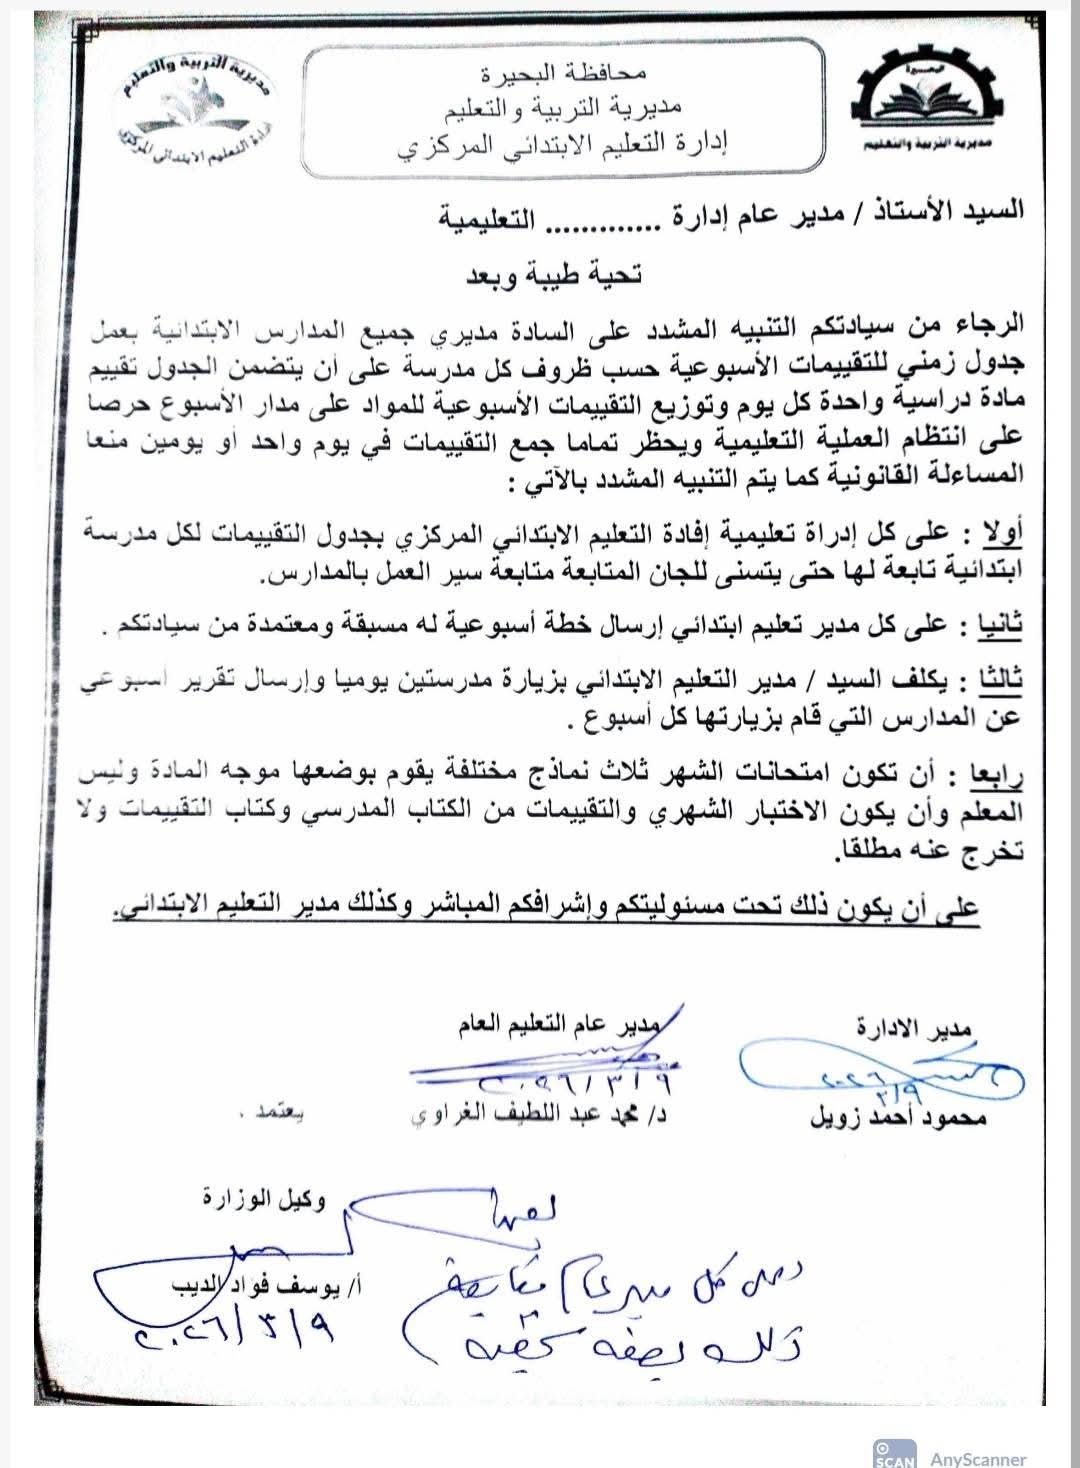 مديرية التربية والتعليم
إدارة التعليم الابتدائي المركزي
محافظة البحيرة
مديرية التربية والتعليم
إدارة التعليم الابتدائي المركزي
البحيرة
مديرية التربية والتعليم
السيد الأستاذ / مدير عام إدارة ............. التعليمية
تحية طيبة وبعد
الرجاء من سيادتكم التنبيه المشدد على السادة مديري جميع المدارس الابتدائية بعمل
جدول زمني للتقييمات الأسبوعية حسب ظروف كل مدرسة على أن يتضمن الجدول تقييم
مادة دراسية واحدة كل يوم وتوزيع التقييمات الأسبوعية للمواد على مدار الأسبوع حرصا
على انتظام العملية التعليمية ويحظر تماما جمع التقييمات في يوم واحد أو يومين منعا
المساءلة القانونية كما يتم التنبيه المشدد بالآتي :
أولا : على كل إدراة تعليمية إفادة التعليم الابتدائي المركزي بجدول التقييمات لكل مدرسة
ابتدائية تابعة لها حتى يتسنى للجان المتابعة متابعة سير العمل بالمدارس.
ثانيا : على كل مدير تعليم ابتدائي إرسال خطة أسبوعية له مسبقة ومعتمدة من سيادتكم .
ثالثا : يكلف السيد / مدير التعليم الابتدائي بزيارة مدرستين يوميا وإرسال تقرير أسبوعي
عن المدارس التي قام بزيارتها كل أسبوع .
رابعا : أن تكون امتحانات الشهر ثلاث نماذج مختلفة يقوم بوضعها موجه المادة وليس
المعلم وأن يكون الاختبار الشهري والتقييمات من الكتاب المدرسي وكتاب التقييمات ولا
تخرج عنه مطلقا.
على أن يكون ذلك تحت مسئوليتكم وإشرافكم المباشر وكذلك مدير التعليم الابتدائي.
مدير الادارة
مدير عام التعليم العام
٢٠٢٦
٣/٩
٢٠٢٦/٣/٩
محمود أحمد زويل
د/ محمد عبد اللطيف الغراوي
يعتمد .
وكيل الوزارة
أ/ يوسف فواد الديب
٢٠٢٦/٣/٩
وعلى كل مدير عام متابعة
ذلك بصفة
SCAN AnyScanner